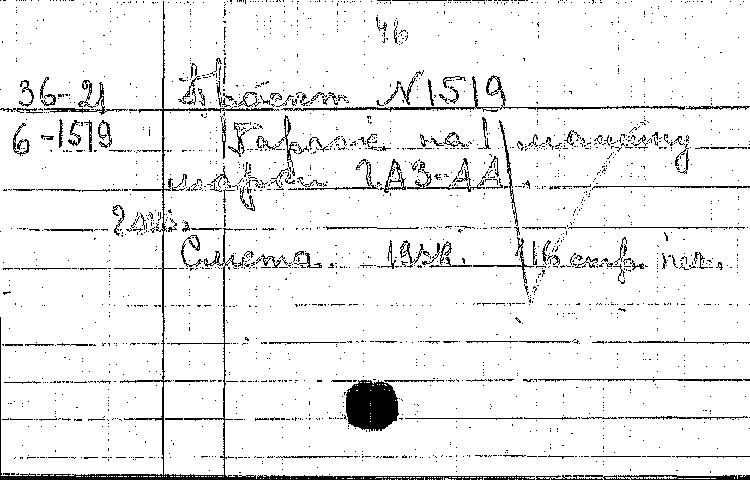 46
36-21 Проект N 1519
6-1519 Гараж на 1 машину
марки ГАЗ-АА.
2 экз.
Смета. 193 г. 116 стр. печ.